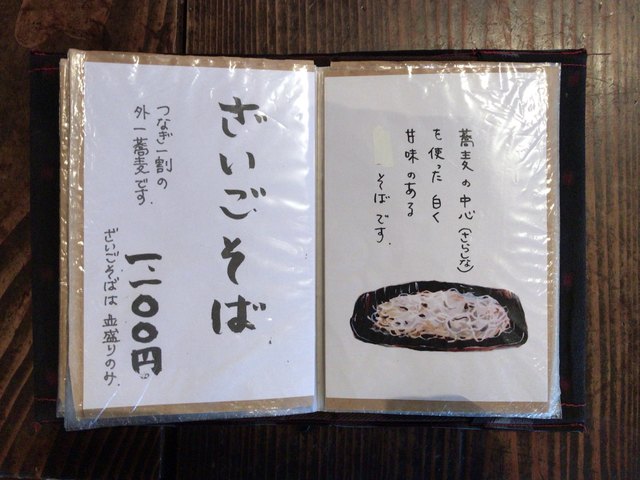 蕎麦の中心(さらしな)
を使った白く
甘味のある
そばです.
ざいごそば
つなぎ一割の
外一蕎麦です.
一二〇〇円。
ざいごそばは皿盛りのみ.